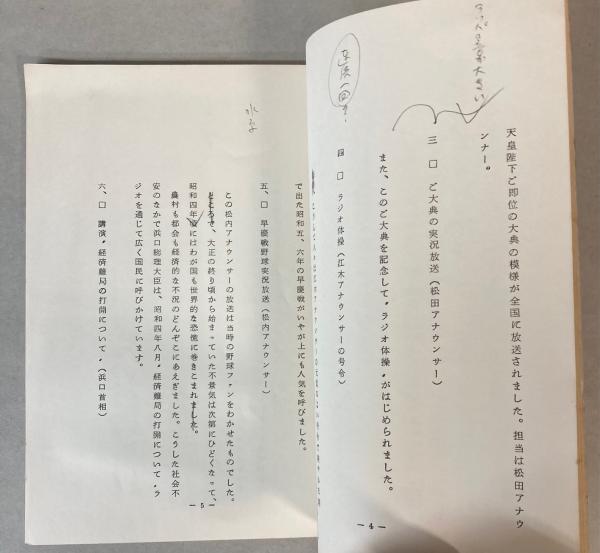 天皇陛下ご即位の大典の模様が全国に放送されました。担当は松田アナウ
ンナー。
三、□ ご大典の実況放送（松田アナウンサー）
また、このご大典を記念して〃ラジオ体操〃がはじめられました。
四、□ ラジオ体操（江木アナウンサーの号令）
― 4 ―
で出た昭和五、六年の早慶戦がいやが上にも人気を呼びました。
五、□ 早慶戦野球実況放送（松内アナウンサー）
この松内アナウンサーの放送は当時の野球ファンをわかせたものでした。
ところで、大正の終り頃から始まっていた不景気は次第にひどくなって、
昭和四年頃にはわが国も世界的な恐慌に巻きこまれました。
農村も都会も経済的な不況のどんぞこにあえぎました。こうした社会不
安のなかで浜口総理大臣は、昭和四年八月〃経済難局の打開について〃ラ
ジオを通じて広く国民に呼びかけています。
六、□ 講演〃経済難局の打開について〃（浜口首相）
― 5 ―